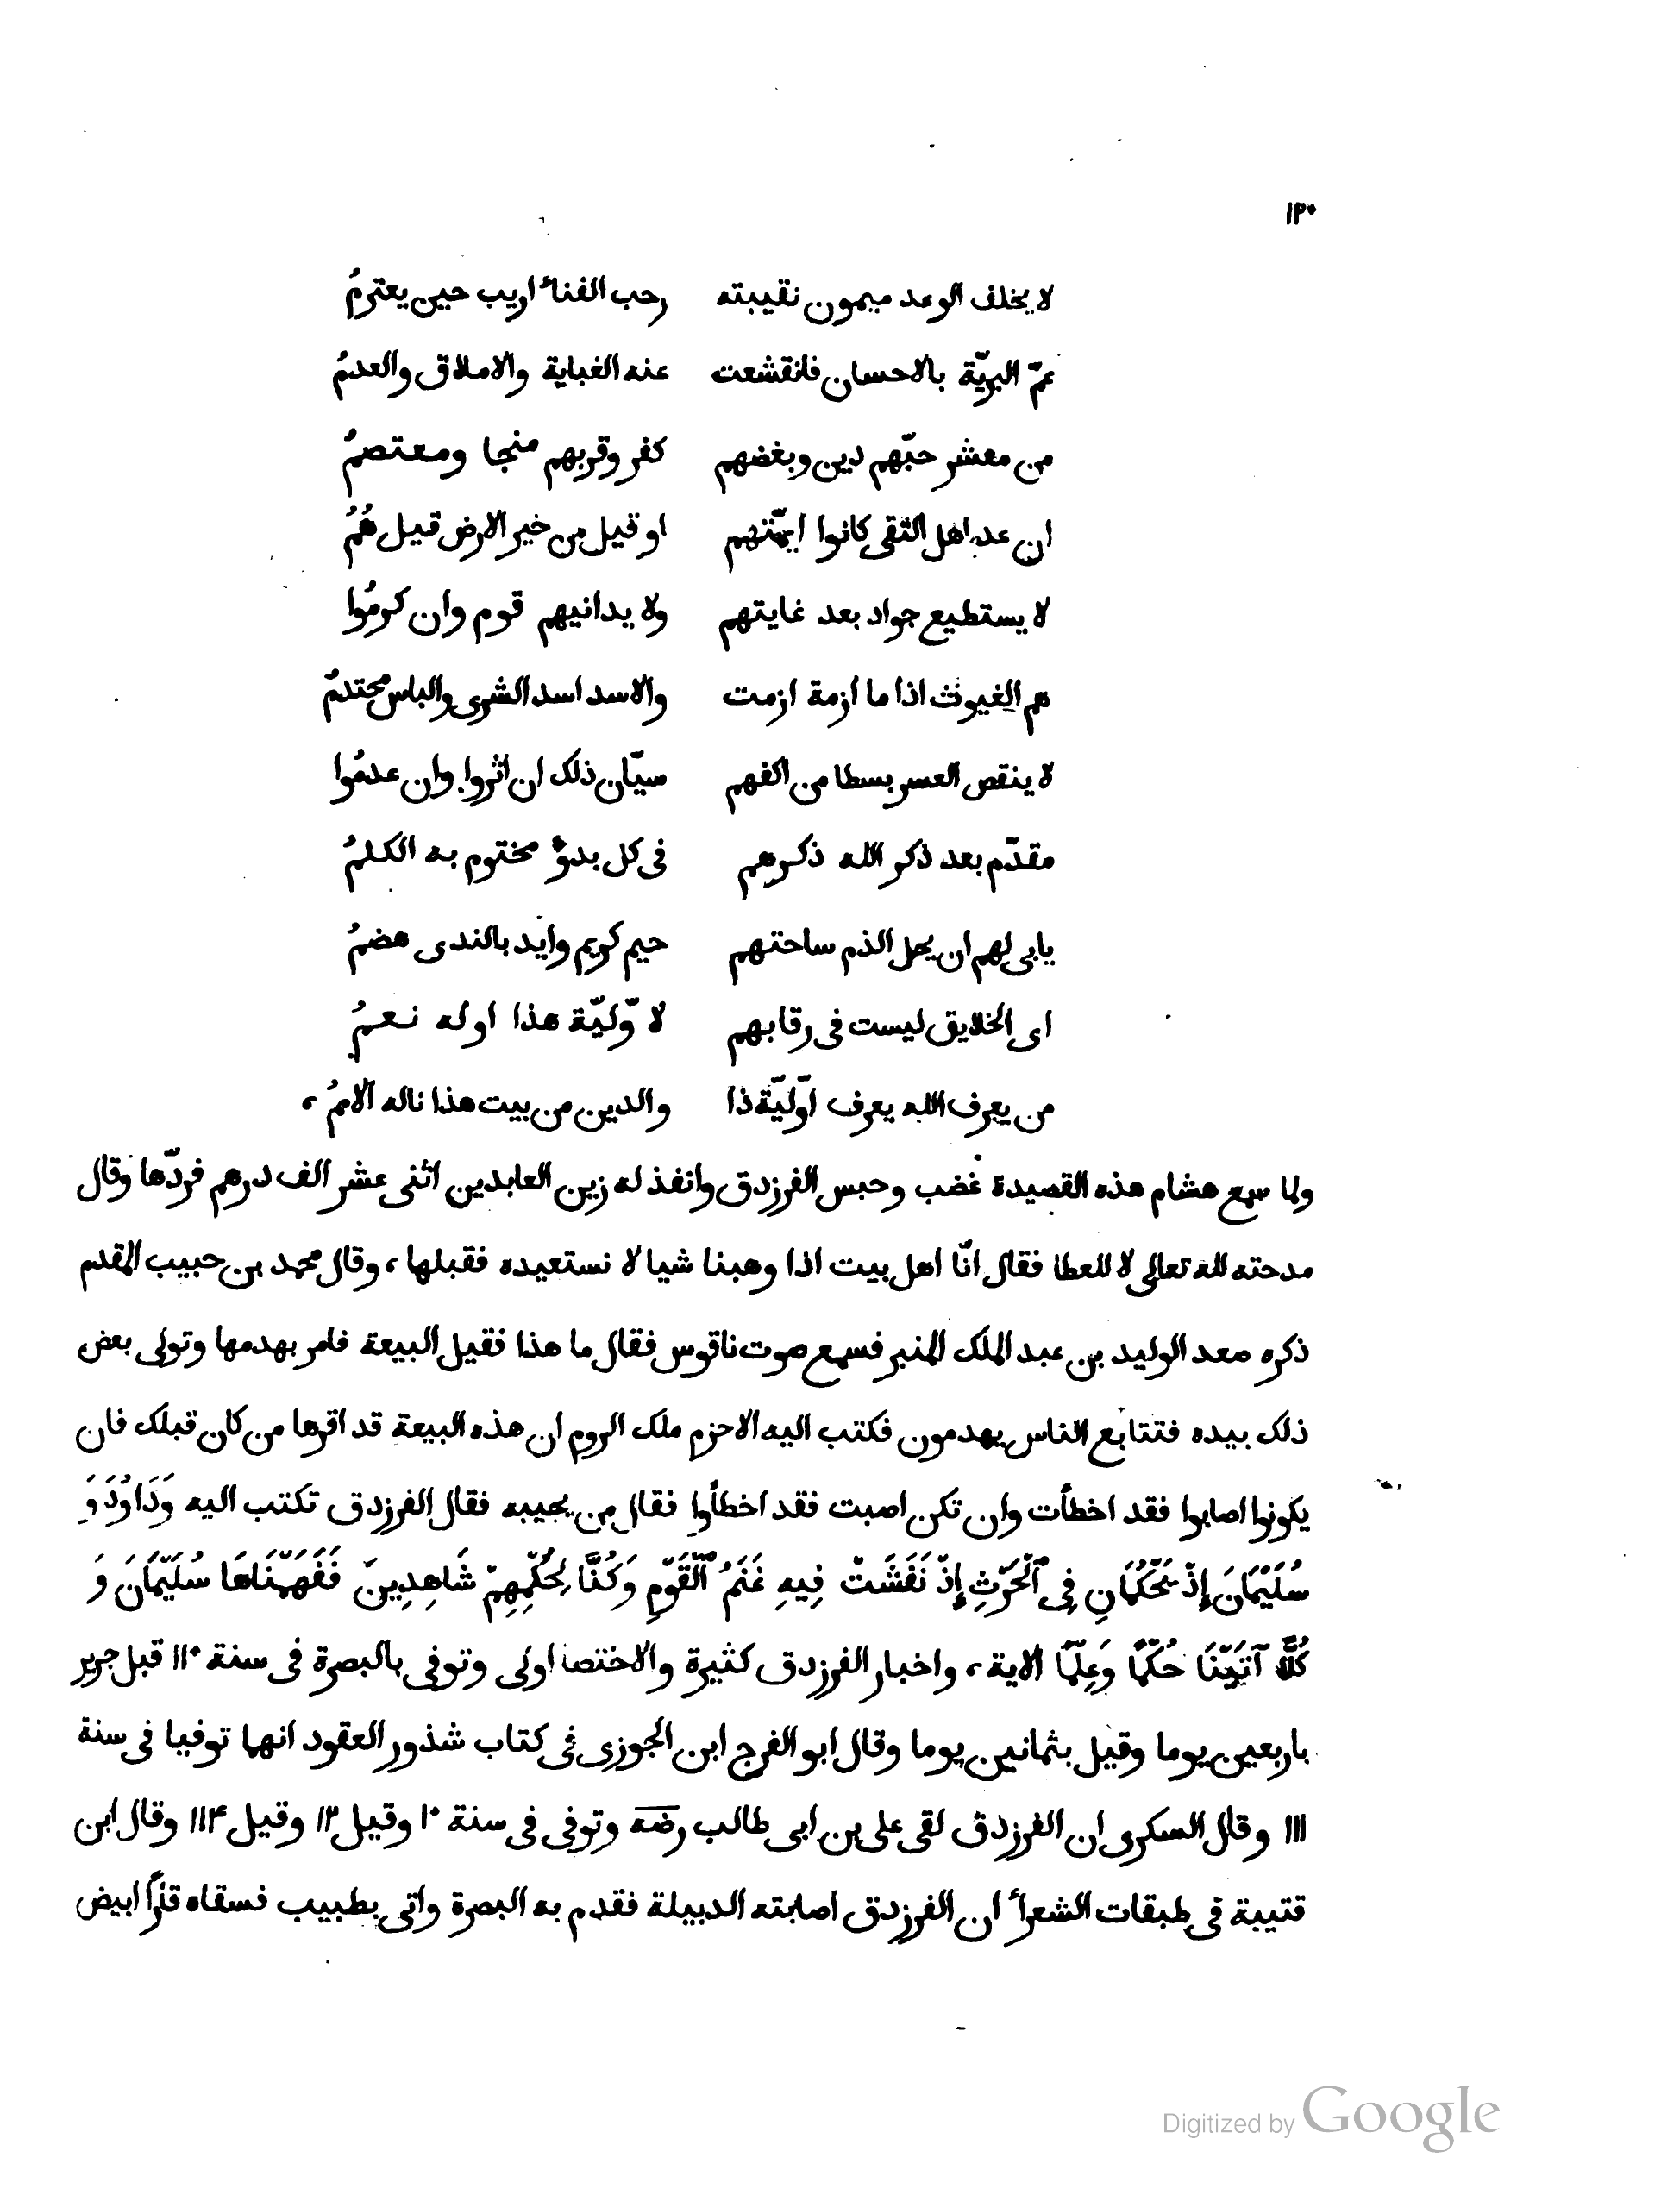 ١٢٠
لا يخلف الوعد ميمون نقيبته رحب الفناء اريب حين يعتزمُ
عمّ البريّة بالاحسان فانقشعت عنه الغياية والاملاق والعدمُ
من معشر حبّهم دين وبغضهم كفر وقربهم منجا ومعتصمُ
ان عد اهل التقى كانوا ايمّتهم او قيل من خير الارض قيل هُمُ
لا يستطيع جواد بعد غايتهم ولا يدانيهم قوم وان كرمُوا
هم الغيوث اذا ما ازمة ازمت والاسد اسد الشرى والباس محتدمُ
لا ينقص العسر بسطا من اكفهم سيّان ذلك ان اثروا وان عدمُوا
مقدّم بعد ذكر الله ذكرهم فى كل بدوٍ مختوم به الكلمُ
يابى لهم ان يحل الذم ساحتهم خيم كريم وايد بالندى هضمُ
اى الخلايق ليست فى رقابهم لاوّليّة هذا اوله نعمُ
من يعرف الله يعرف اوّليّة ذا والدين من بيت هذا ناله الاممُ ،
ولما سمع هشام هذه القصيدة غضب وحبس الفرزدق وانفذ له زين العابدين اثنى عشر الف درهم فردّها وقال
مدحته لله تعالى لا للعطا فقال انّا اهل بيت اذا وهبنا شيا لا نستعيده فقبلها ، وقال محمد بن حبيب المقدم
ذكره صعد الوليد بن عبد الملك المنبر فسمع صوت ناقوس فقال ما هذا فقيل البيعة فامر بهدمها وتولى بعض
ذلك بيده فتتابع الناس يهدمون فكتب اليه الاخرم ملك الروم ان هذه البيعة قد اقرها من كان قبلك فان
يكونوا اصابوا فقد اخطأت وان تكن اصبت فقد اخطأوا فقال من يجيبه فقال الفرزدق تكتب اليه وَدَاوُدَ وَ
سُلَيْمَانَ إِذْ يَحْكُمَانِ فِى ٱلْحَرْثِ إِذْ نَفَشَتْ فِيهِ غَنَمُ ٱلْقَوْمِ وَكُنَّا لِحُكْمِهِمْ شَاهِدِينَ فَفَهَّمْنَاهَا سُلَيْمَانَ وَ
كُلًّا آتَيْنَا حُكْمًا وَعِلْمًا الاية ، واخبار الفرزدق كثيرة والاختصا اولى وتوفى بالبصرة فى سنة ١١٠ قبل جرير
باربعين يوما وقيل بثمانين يوما وقال ابو الفرج ابن الجوزى فى كتاب شذور العقود انهما توفيا فى سنة
١١١ وقال السكرى ان الفرزدق لقى على بن ابى طالب رضه وتوفى فى سنة ١٠ وقيل ١٢ وقيل ١١٤ وقال ابن
قتيبة فى طبقات الشعراء ان الفرزدق اصابته الدبيلة فقدم به البصرة واتى بطبيب فسقاه قارًا ابيض
Digitized by Google